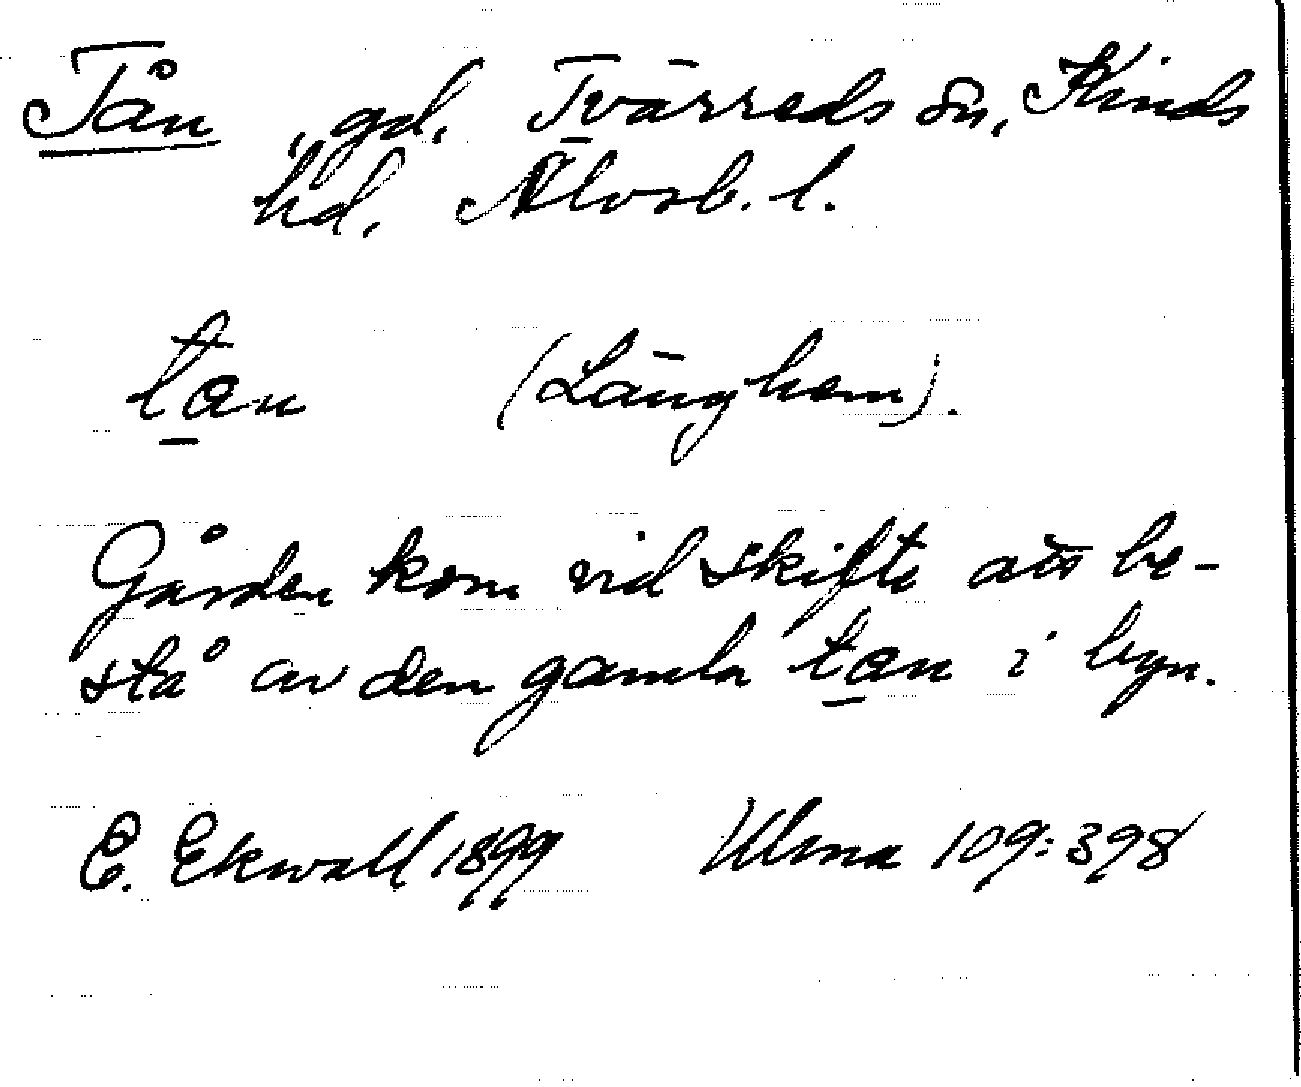 Tån, gd. Tvärreds sn, Kinds
hd. Älvsb. l.
tan (Länghem).
Gården kom vid skifte att be-
stå av den gamla tan i byn.
E. Ekwall 1899 Ulma 109:398